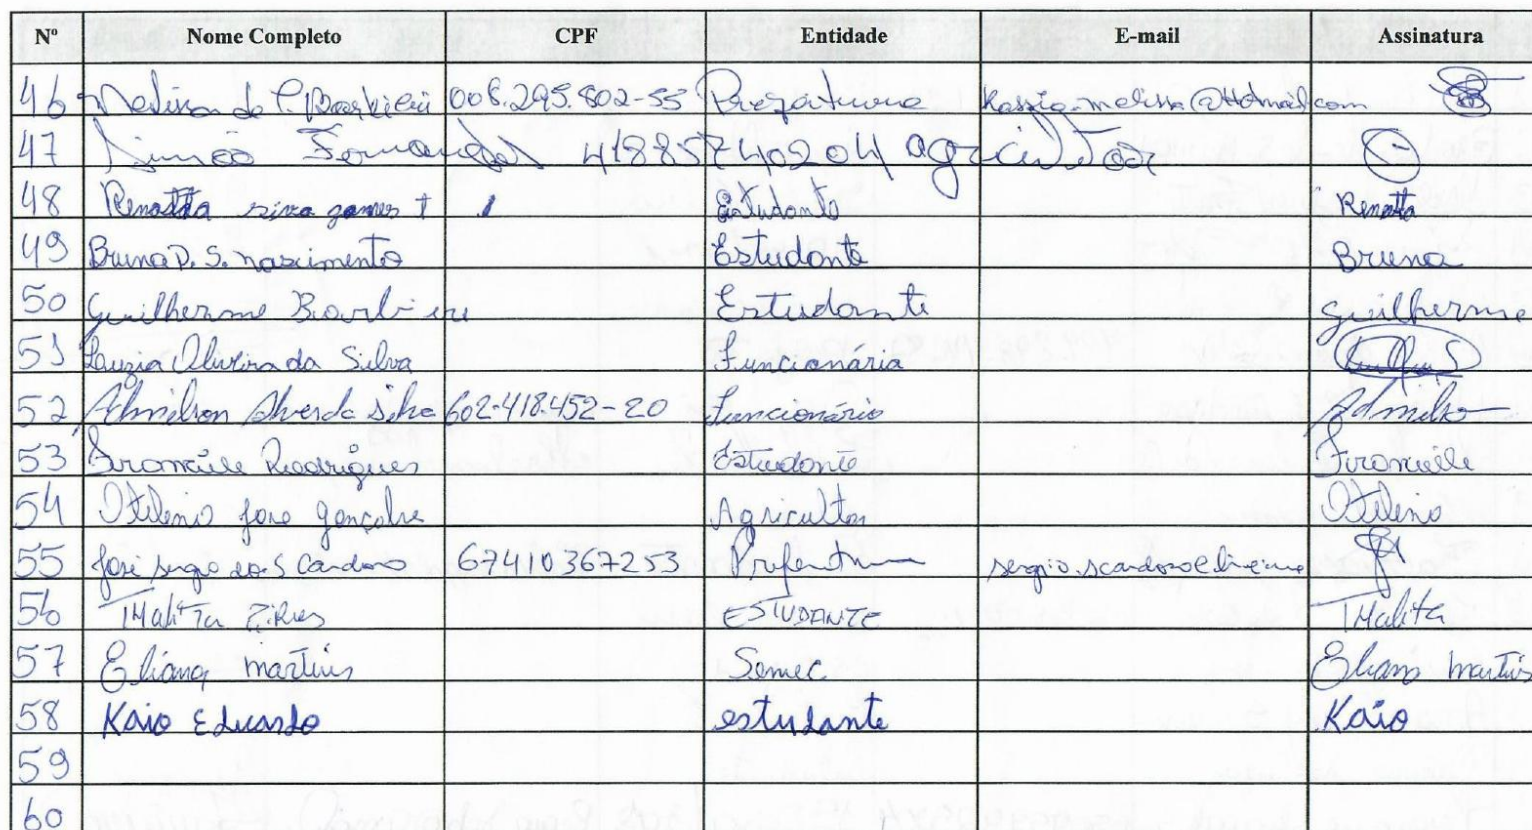 Nº Nome Completo CPF Entidade E-mail Assinatura
46 de 008.295.802-55 Prefeitura
47 Simão Fernandes 41885740204 agricultor
48 Renatta gomes Estudante Renatta
49 Bruna D. S. nascimento Estudante Bruna
50 Guilherme Barbieri Estudante guilherme
51 Luzia Oliveira da Silva Funcionária
52 Admilson Alves da silva 602.418.452-20 Funcionário Admilso
53 Francielle Rodrigues Estudante Francielle
54 José Gonçalve Agricultor
55 José Sergio dos S Cardoso 67410367253 Prefeitura
56 Thalita ESTUDANTE Thalita
57 Eliana martins Semec Eliana Martins
58 Kaio Eduardo estudante Kaio
59
60